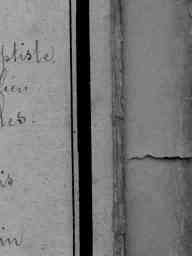 ptiste
lien
les.
is
in